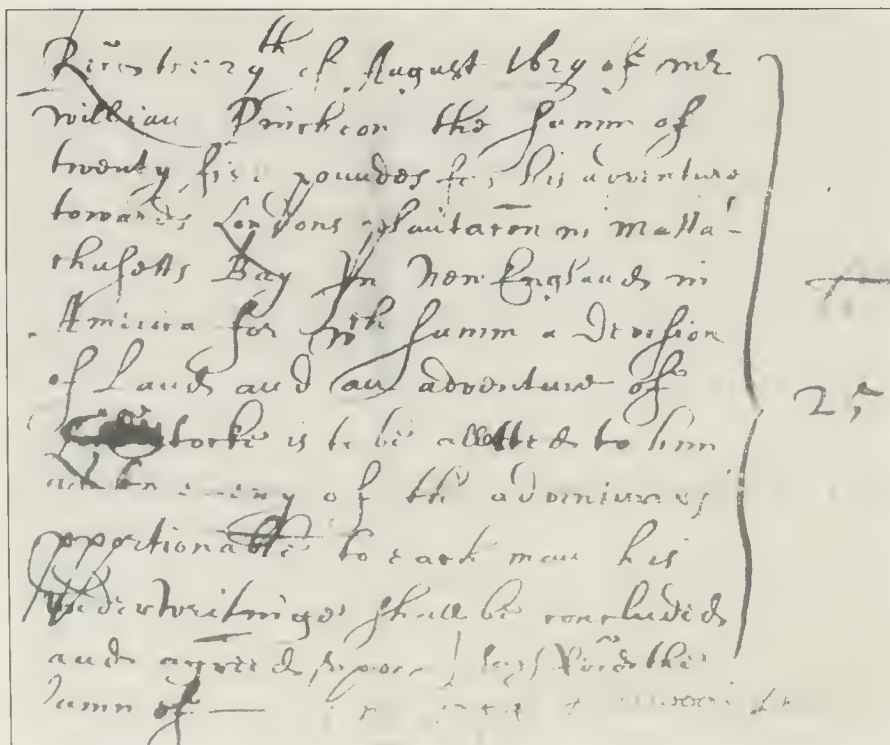 Rec͠ the 29th of August 1629 of mr
william Pincheon the summ of
twenty five poundes for his adventure
towards Londons plantac͠on in Massa-
chusetts Bay In New England in
America for wch summ a Devision
of Land and an adventure of
stocke is to be allotted to him
every of the adventurers
pportionable to each man his
Underwritinge shall be concluded
and agreed upon I say the
summ of —
25